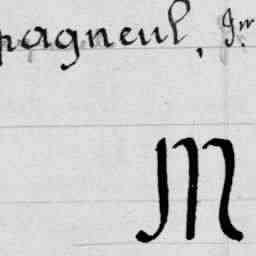 pagneul, Jm
M